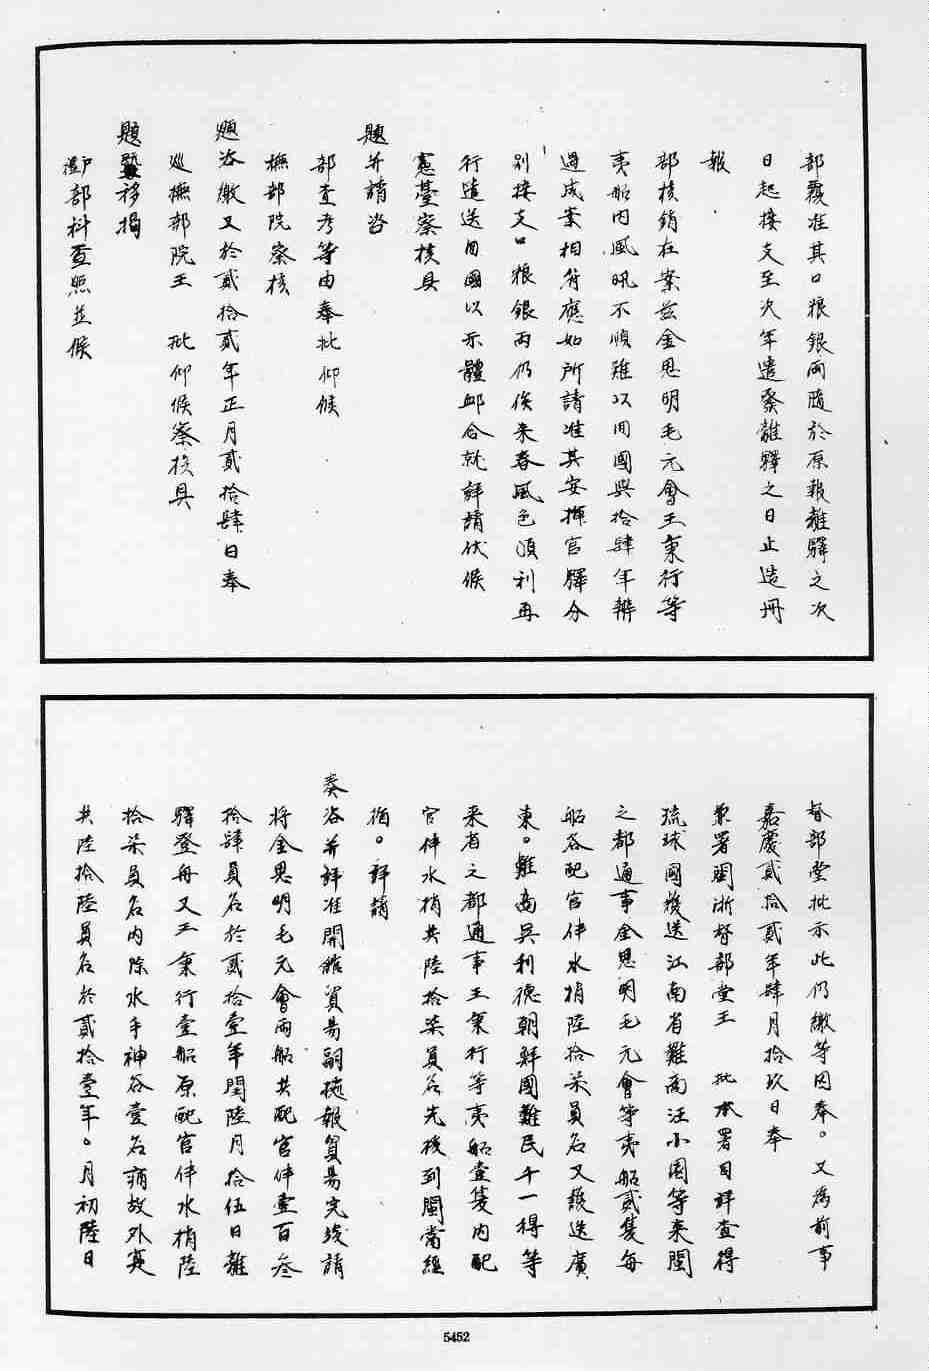 部覆准其口粮銀兩隨於原報離驛之次
日起接支至次年遣發離驛之日止造冊
報
部核銷在案茲金思明毛元會王秉行等
夷船內風汛不順難以回國與拾肆年辦
過成案相符應如所請准其安揷官驛分
別接支口粮銀兩仍俟來春風色順利再
行遣送回國以示體卹合就詳請伏候
憲臺察核具
題并請咨
部查考等由奉批仰候
撫部院察核
題咨繳又於貳拾貳年正月貳拾肆日奉
巡撫部院王 批仰候察核具
題移揭
部科查照並候
督部堂批示此仍繳等因奉。又為前事
嘉慶貳拾貳年肆月拾玖日奉
兼署閩浙督部堂王 批本署司詳查得
琉球國護送江南省難商汪小園等來閩
之都通事金思明毛元會等夷船貳隻每
船各配官伴水梢陸拾柒員名又護送廣
東。難商吳利德朝鮮國難民千一得等
來省之都通事王秉行等夷船壹隻內配
官伴水梢共陸拾柒員名先後到閩當經
循。詳請
奏咨并詳准開館貿易嗣據報貿易完竣請
將金思明毛元會兩船共配官伴壹百叁
拾肆員名於貳拾壹年閏陸月拾伍日離
驛登舟又王秉行壹船原配官伴水梢陸
拾柒員名內除水手神谷壹名病故外寔
共陸拾陸員名於貳拾壹年。月初陸日
5452